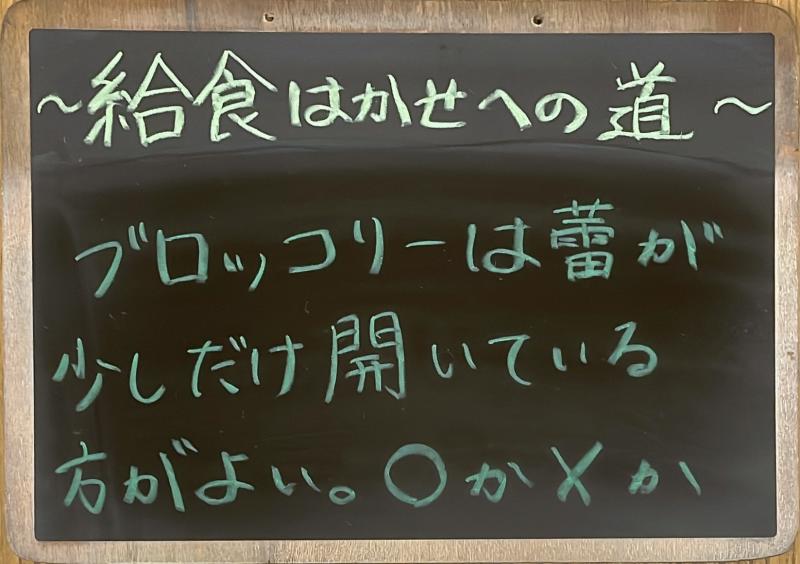 ～給食はかせへの道～
ブロッコリーは蕾が
少しだけ開いている
方がよい。〇か✕か